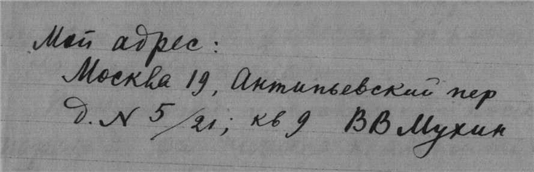 Мой адрес:
Москва 19, Антипьевский пер
д. N 5/21; кв 9 ВВ Мухин